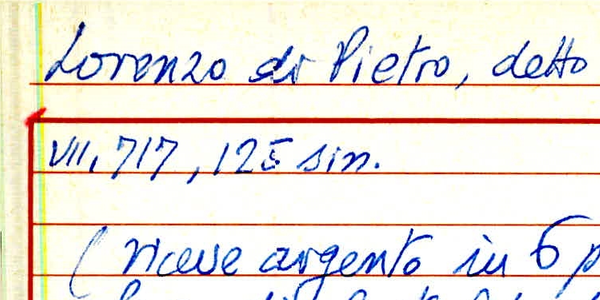 Lorenzo di Pietro, detto
VII, 717, 125 sin.
(riceve argento in 6 p